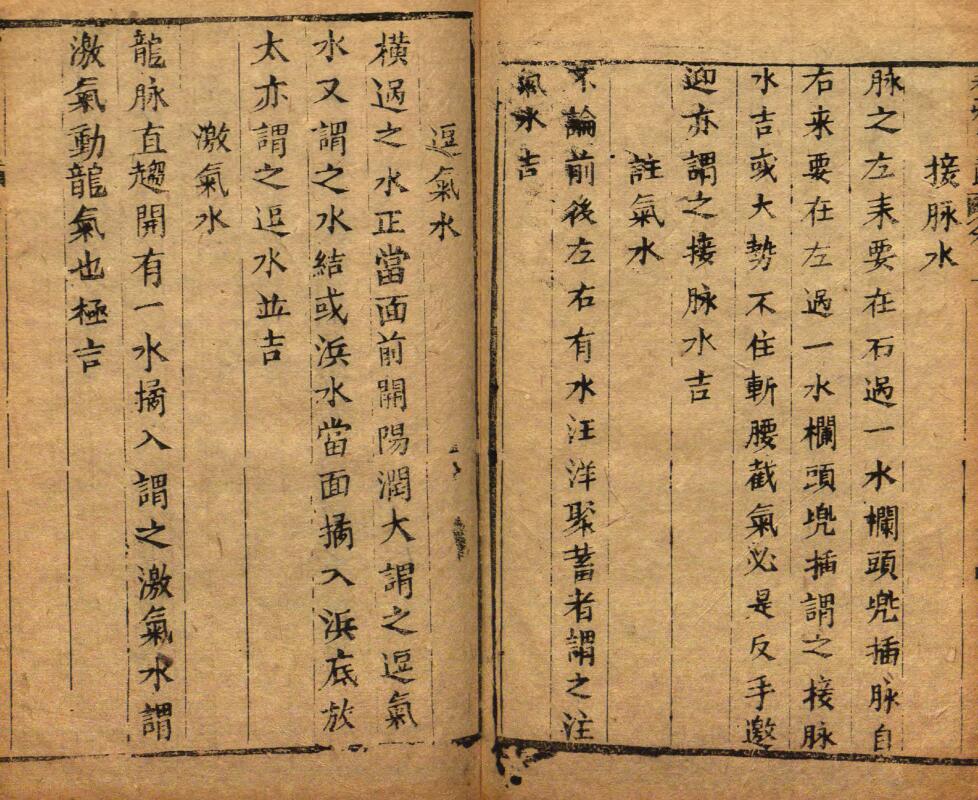 接脉水
脉之左来要在石過一水欄頭兜插脉自
右来要在左過一水欄頭兜插謂之接脉
水吉或大勢不住斬腰截氣必是反手邀
迎亦謂之接脉水吉
註氣水
不論前後左右有水汪洋聚蓄者謂之注
氣水吉
逗氣水
橫過之水正當面前開陽濶大謂之逗氣
水又謂之水結或浜水當面㨿入浜底放
太亦謂之逗水並吉
激氣水
龍脉直趨開有一水㨿入謂之激氣水謂
激氣動龍氣也極吉